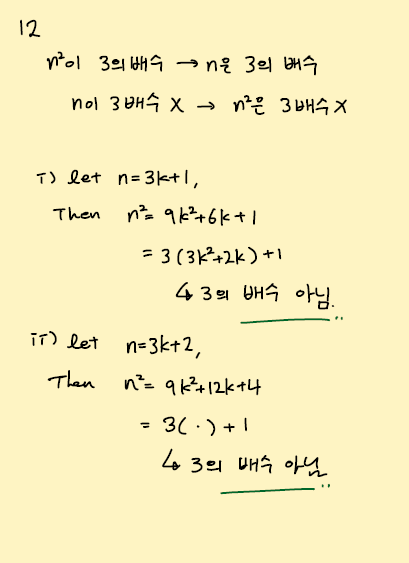 12
n²이 3의 배수 → n은 3의 배수
n이 3배수 X → n²은 3배수 X
i) let n=3k+1,
Then n²= 9k²+6k+1
= 3(3k²+2k)+1
↳ 3의 배수 아님.
ii) let n=3k+2,
Then n²= 9k²+12k+4
= 3(·)+1
↳ 3의 배수 아님